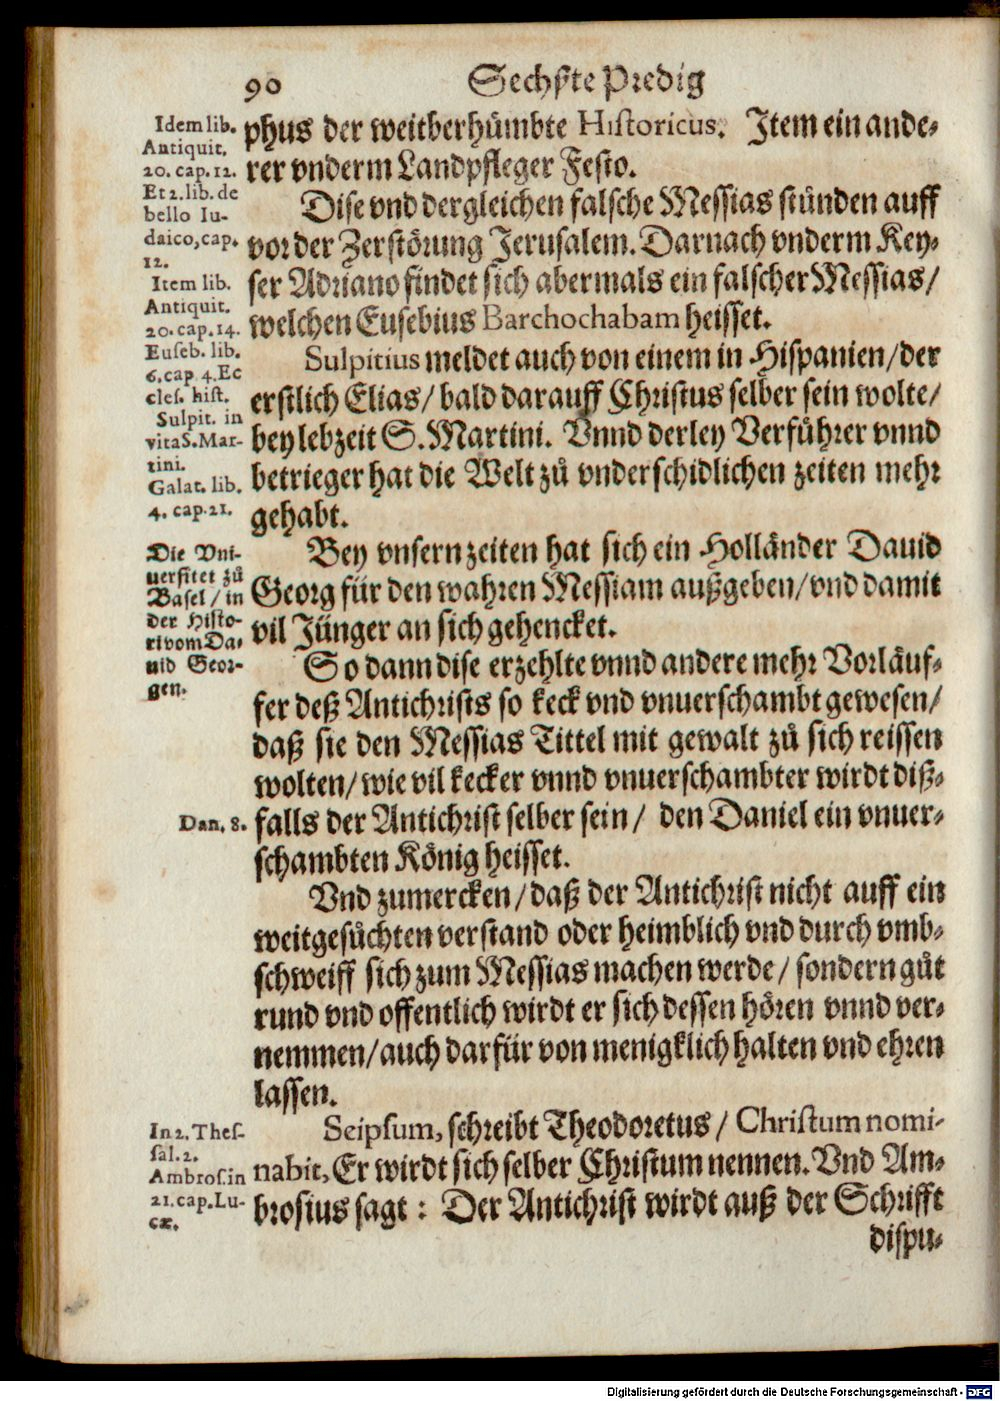 90 Sechste Predig
phus der weitberhümbte Historicus. Item ein ande-
rer vnderm Landpfleger Festo.
Dise vnd dergleichen falsche Messias stünden auff
vor der Zerstörung Jerusalem. Darnach vnderm Key-
ser Adriano findet sich abermals ein falscher Messias/
welchen Eusebius Barchochabam heisset.
Sulpitius meldet auch von einem in Hispanien/der
erstlich Elias/ bald darauff Christus selber sein wolte/
bey lebzeit S. Martini. Vnnd derley Verführer vnnd
betrieger hat die Welt zů vnderschidlichen zeiten mehr
gehabt.
Bey vnsern zeiten hat sich ein Holländer Dauid
Georg für den wahren Messiam außgeben/vnd damit
vil Jünger an sich gehencket.
So dann dise erzehlte vnnd andere mehr Vorläuf-
fer deß Antichrists so keck vnd vnuerschambt gewesen/
daß sie den Messias Tittel mit gewalt zů sich reissen
wolten/wie vil kecker vnnd vnuerschambter wirdt diß-
falls der Antichrist selber sein/ den Daniel ein vnuer-
schambten König heisset.
Vnd zumercken/daß der Antichrist nicht auff ein
weitgesůchten verstand oder heimblich vnd durch vmb-
schweiff sich zum Messias machen werde/ sondern gůt
rund vnd offentlich wirdt er sich dessen hören vnnd ver-
nemmen/auch darfür von menigklich halten vnd ehren
lassen.
Seipsum, schreibt Theodoretus/ Christum nomi-
nabit, Er wirdt sich selber Christum nennen. Vnd Am-
brosius sagt: Der Antichrist wirdt auß der Schrifft
dispu-
Idem lib.
Antiquit.
20. cap. 12.
Et 2. lib. de
bello Iu-
daico, cap.
12.
Item lib.
Antiquit.
20. cap. 14.
Euseb. lib.
6. cap. 4. Ec
cles. hist.
Sulpit. in
vita S. Mar-
tini.
Galat. lib.
4. cap. 21.
Die Vni-
uersitet zů
Basel/ in
der Histo-
ri vom Da-
uid Geor-
gen.
Dan. 8.
In 2. Thes-
sal. 2.
Ambros. in
21. cap. Lu-
cæ.
Digitalisierung gefördert durch die Deutsche Forschungsgemeinschaft - DFG